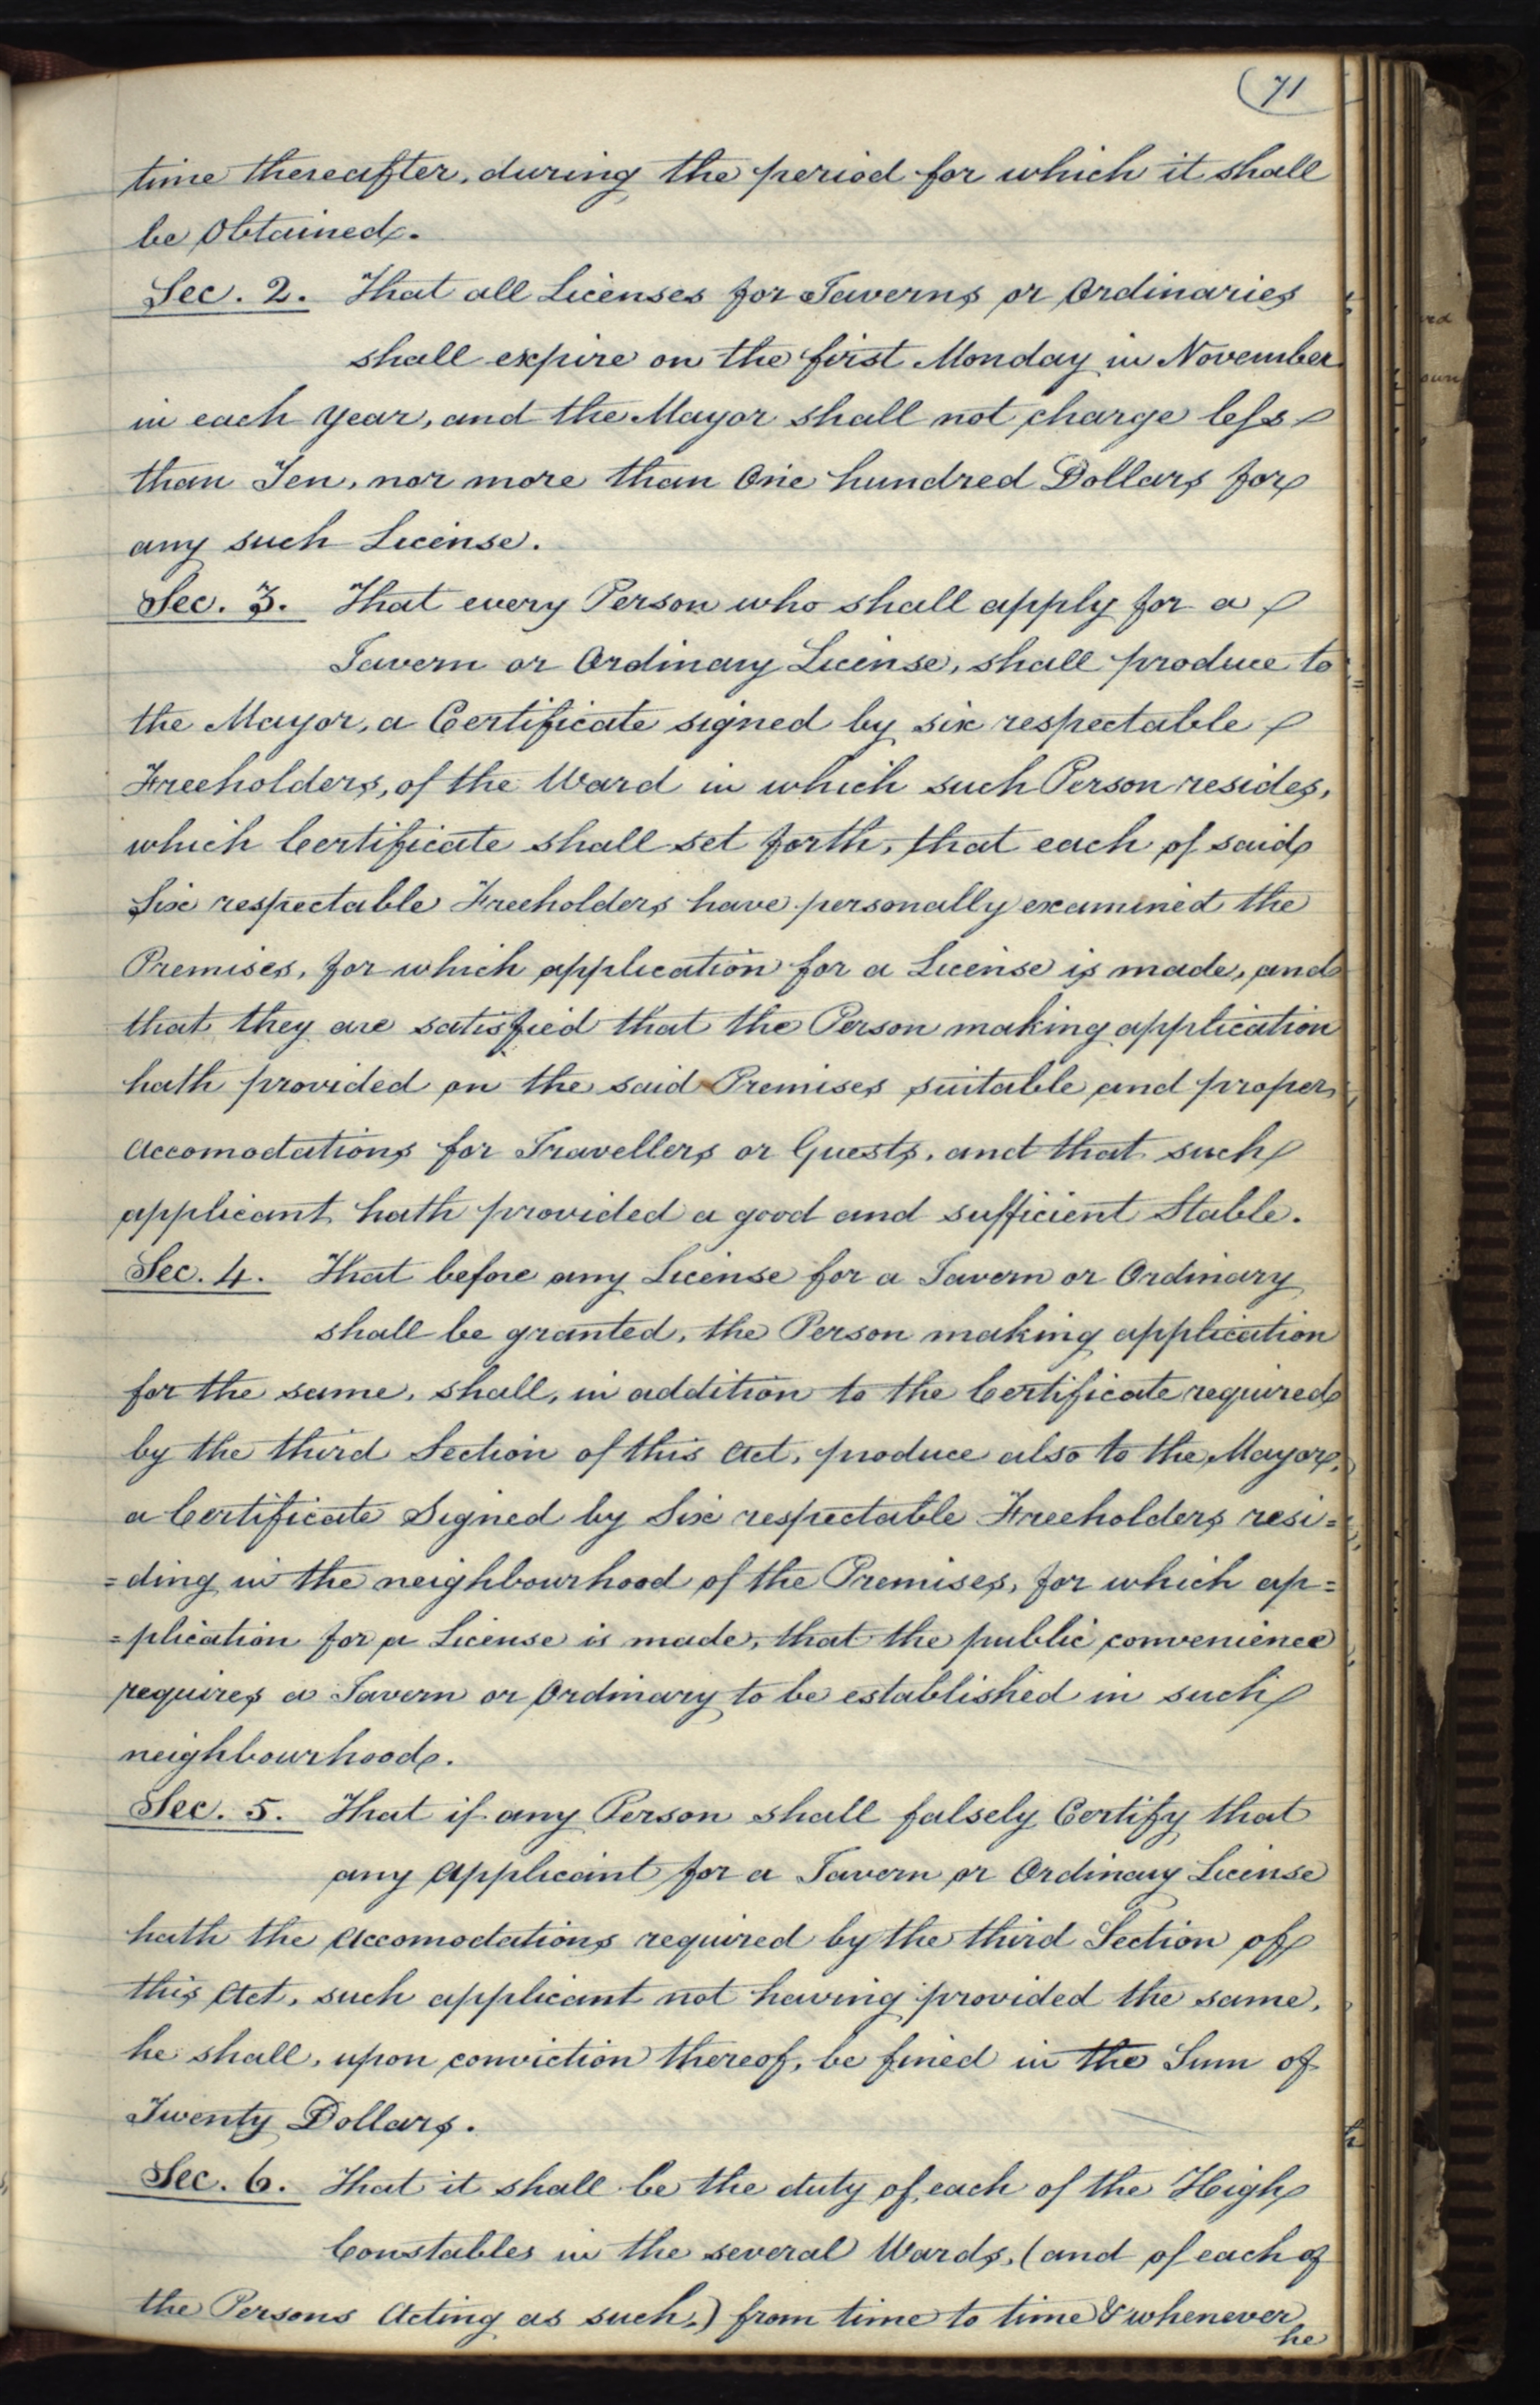 (71
time thereafter, during the period for which it shall
be Obtained.
Sec. 2. That all Licenses for Taverns or Ordinaries
shall expire on the first Monday in November
in each Year, and the Mayor shall not charge less
than Ten, nor more than One hundred Dollars for
any such License.
Sec. 3. That every Person who shall apply for a
Tavern or Ordinary License, shall produce to
the Mayor, a Certificate signed by six respectable
Freeholders, of the Ward in which such Person resides,
which Certificate shall set forth, that each of said
Six respectable Freeholders have personally examined the
Premises, for which application for a License is made, and
that they are satisfied that the Person making application
hath provided on the said Premises suitable and proper
Accomodations for Travellers or Guests, and that such
applicant hath provided a good and sufficient Stable.
Sec. 4. That before any License for a Tavern or Ordinary
shall be granted, the Person making application
for the same, shall, in addition to the Certificate required
by the third Section of this Act, produce also to the Mayor,
a Certificate Signed by Six respectable Freeholders resi=
=ding in the neighbourhood of the Premises, for which ap=
=plication for a License is made, that the public convenience
requires a Tavern or Ordinary to be established in such
neighbourhood.
Sec. 5. That if any Person shall falsely Certify that
any Applicant for a Tavern or Ordinary License
hath the Accomodations required by the third Section of
this Act, such applicant not having provided the same,
he shall, upon conviction thereof, be fined in the Sum of
Twenty Dollars.
Sec. 6. That it shall be the duty of each of the High
Constables in the several Wards, (and of each of
the Persons Acting as such,) from time to time & whenever
he